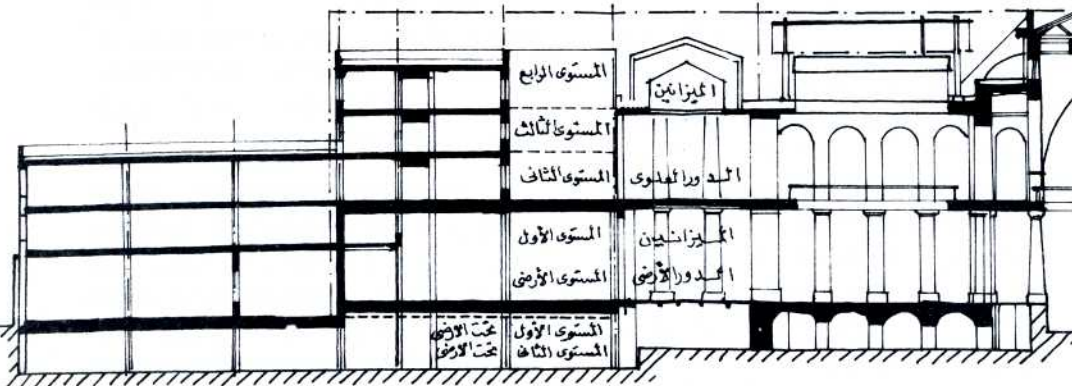 المستوى الرابع
الميزانين
المستوى الثالث
المستوى الثانى
الدور العلوى
المستوى الأول
الميزانين
المستوى الأرضى
الدور الأرضى
المستوى الأول تحت الأرضى
المستوى الثانى تحت الأرضى